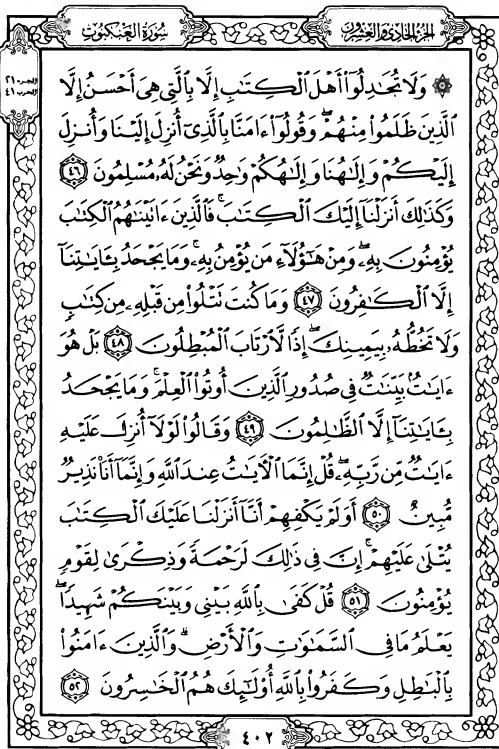 الجزء الحادي والعشرون
سُورَةُ العَنكبوت
الجزء ٢١
الحزب ٤١
۞ وَلَا تُجَٰدِلُوٓا۟ أَهْلَ ٱلْكِتَٰبِ إِلَّا بِٱلَّتِى هِىَ أَحْسَنُ إِلَّا
ٱلَّذِينَ ظَلَمُوا۟ مِنْهُمْ ۖ وَقُولُوٓا۟ ءَامَنَّا بِٱلَّذِىٓ أُنزِلَ إِلَيْنَا وَأُنزِلَ
إِلَيْكُمْ وَإِلَٰهُنَا وَإِلَٰهُكُمْ وَٰحِدٌ وَنَحْنُ لَهُۥ مُسْلِمُونَ ٤٦
وَكَذَٰلِكَ أَنزَلْنَآ إِلَيْكَ ٱلْكِتَٰبَ ۚ فَٱلَّذِينَ ءَاتَيْنَٰهُمُ ٱلْكِتَٰبَ
يُؤْمِنُونَ بِهِۦ ۖ وَمِنْ هَٰٓؤُلَآءِ مَن يُؤْمِنُ بِهِۦ ۚ وَمَا يَجْحَدُ بِـَٔايَٰتِنَآ
إِلَّا ٱلْكَٰفِرُونَ ٤٧ وَمَا كُنتَ تَتْلُوا۟ مِن قَبْلِهِۦ مِن كِتَٰبٍ
وَلَا تَخُطُّهُۥ بِيَمِينِكَ ۖ إِذًا لَّٱرْتَابَ ٱلْمُبْطِلُونَ ٤٨ بَلْ هُوَ
ءَايَٰتٌۢ بَيِّنَٰتٌ فِى صُدُورِ ٱلَّذِينَ أُوتُوا۟ ٱلْعِلْمَ ۚ وَمَا يَجْحَدُ
بِـَٔايَٰتِنَآ إِلَّا ٱلظَّٰلِمُونَ ٤٩ وَقَالُوا۟ لَوْلَآ أُنزِلَ عَلَيْهِ
ءَايَٰتٌ مِّن رَّبِّهِۦ ۖ قُلْ إِنَّمَا ٱلْءَايَٰتُ عِندَ ٱللَّهِ وَإِنَّمَآ أَنَا۠ نَذِيرٌ
مُّبِينٌ ٥٠ أَوَلَمْ يَكْفِهِمْ أَنَّآ أَنزَلْنَا عَلَيْكَ ٱلْكِتَٰبَ
يُتْلَىٰ عَلَيْهِمْ ۚ إِنَّ فِى ذَٰلِكَ لَرَحْمَةً وَذِكْرَىٰ لِقَوْمٍ
يُؤْمِنُونَ ٥١ قُلْ كَفَىٰ بِٱللَّهِ بَيْنِى وَبَيْنَكُمْ شَهِيدًا ۖ
يَعْلَمُ مَا فِى ٱلسَّمَٰوَٰتِ وَٱلْأَرْضِ ۗ وَٱلَّذِينَ ءَامَنُوا۟
بِٱلْبَٰطِلِ وَكَفَرُوا۟ بِٱللَّهِ أُو۟لَٰٓئِكَ هُمُ ٱلْخَٰسِرُونَ ٥٢
٤٠٢